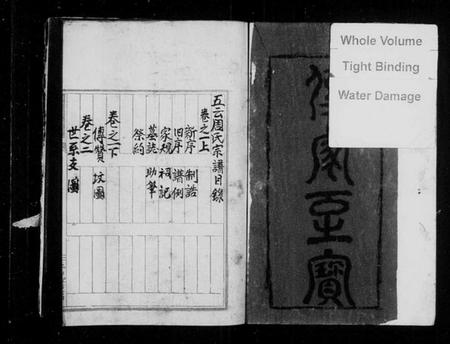 Whole Volume
Tight Binding
Water Damage
家至寶
五云周氏宗譜目錄
卷之上
新序 制誥
旧序 譜例
家规 祠記
墓誌 助筆
祭約
卷之下
傳贊 坟圖
卷之二
世系支圖